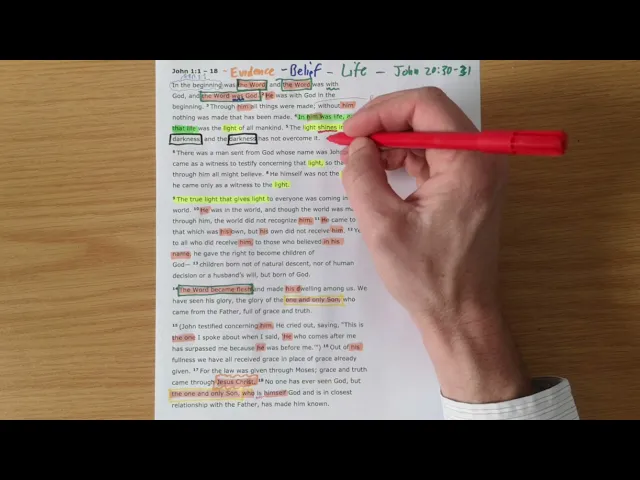 John 1:1 - 18 - Evidence - Belief - Life - John 20:30-31
In the beginning was the Word, and the Word was with
God, and the Word was God. ² He was with God in the
beginning. ³ Through him all things were made; without him
nothing was made that has been made. ⁴ In him was life,
that life was the light of all mankind. ⁵ The light shines
darkness, and the darkness has not overcome it.
⁶ There was a man sent from God whose name was
came as a witness to testify concerning that light, so
through him all might believe. ⁸ He himself was not the
he came only as a witness to the light.
⁹ The true light that gives light to everyone was coming
world. ¹⁰ He was in the world, and though the world was
through him, the world did not recognize him. ¹¹ He came to
that which was his own, but his own did not receive him.
to all who did receive him, to those who believed in his
name, he gave the right to become children of
God— ¹³ children born not of natural descent, nor of human
decision or a husband's will, but born of God.
¹⁴ The Word became flesh and made his dwelling among us. We
have seen his glory, the glory of the one and only Son, who
came from the Father, full of grace and truth.
¹⁵ (John testified concerning him. He cried out, saying, "This is
the one I spoke about when I said, 'He who comes after me
has surpassed me because he was before me.'") ¹⁶ Out of his
fullness we have all received grace in place of grace already
given. ¹⁷ For the law was given through Moses; grace and truth
came through Jesus Christ. ¹⁸ No one has ever seen God, but
the one and only Son, who is himself God and is in closest
relationship with the Father, has made him known.